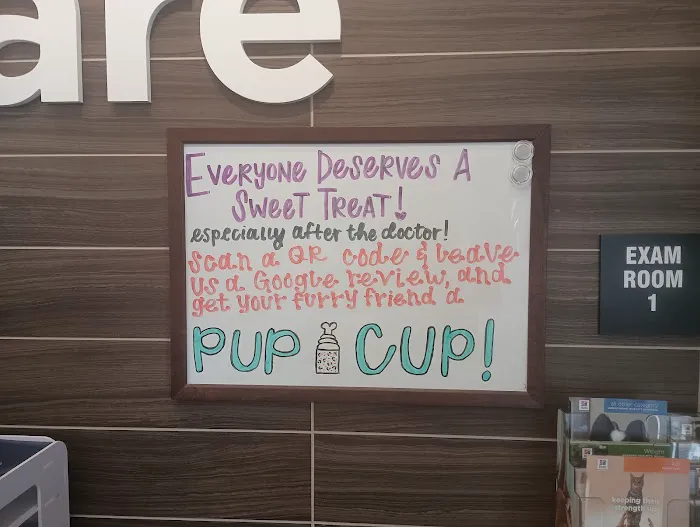 are
EVERYONE DESERVES A
SWEET TREAT!
especially after the doctor!
scan a QR code & leave
us a Google review, and
get your furry friend a
PUP CUP!
EXAM
ROOM
1
Weight
keeping them